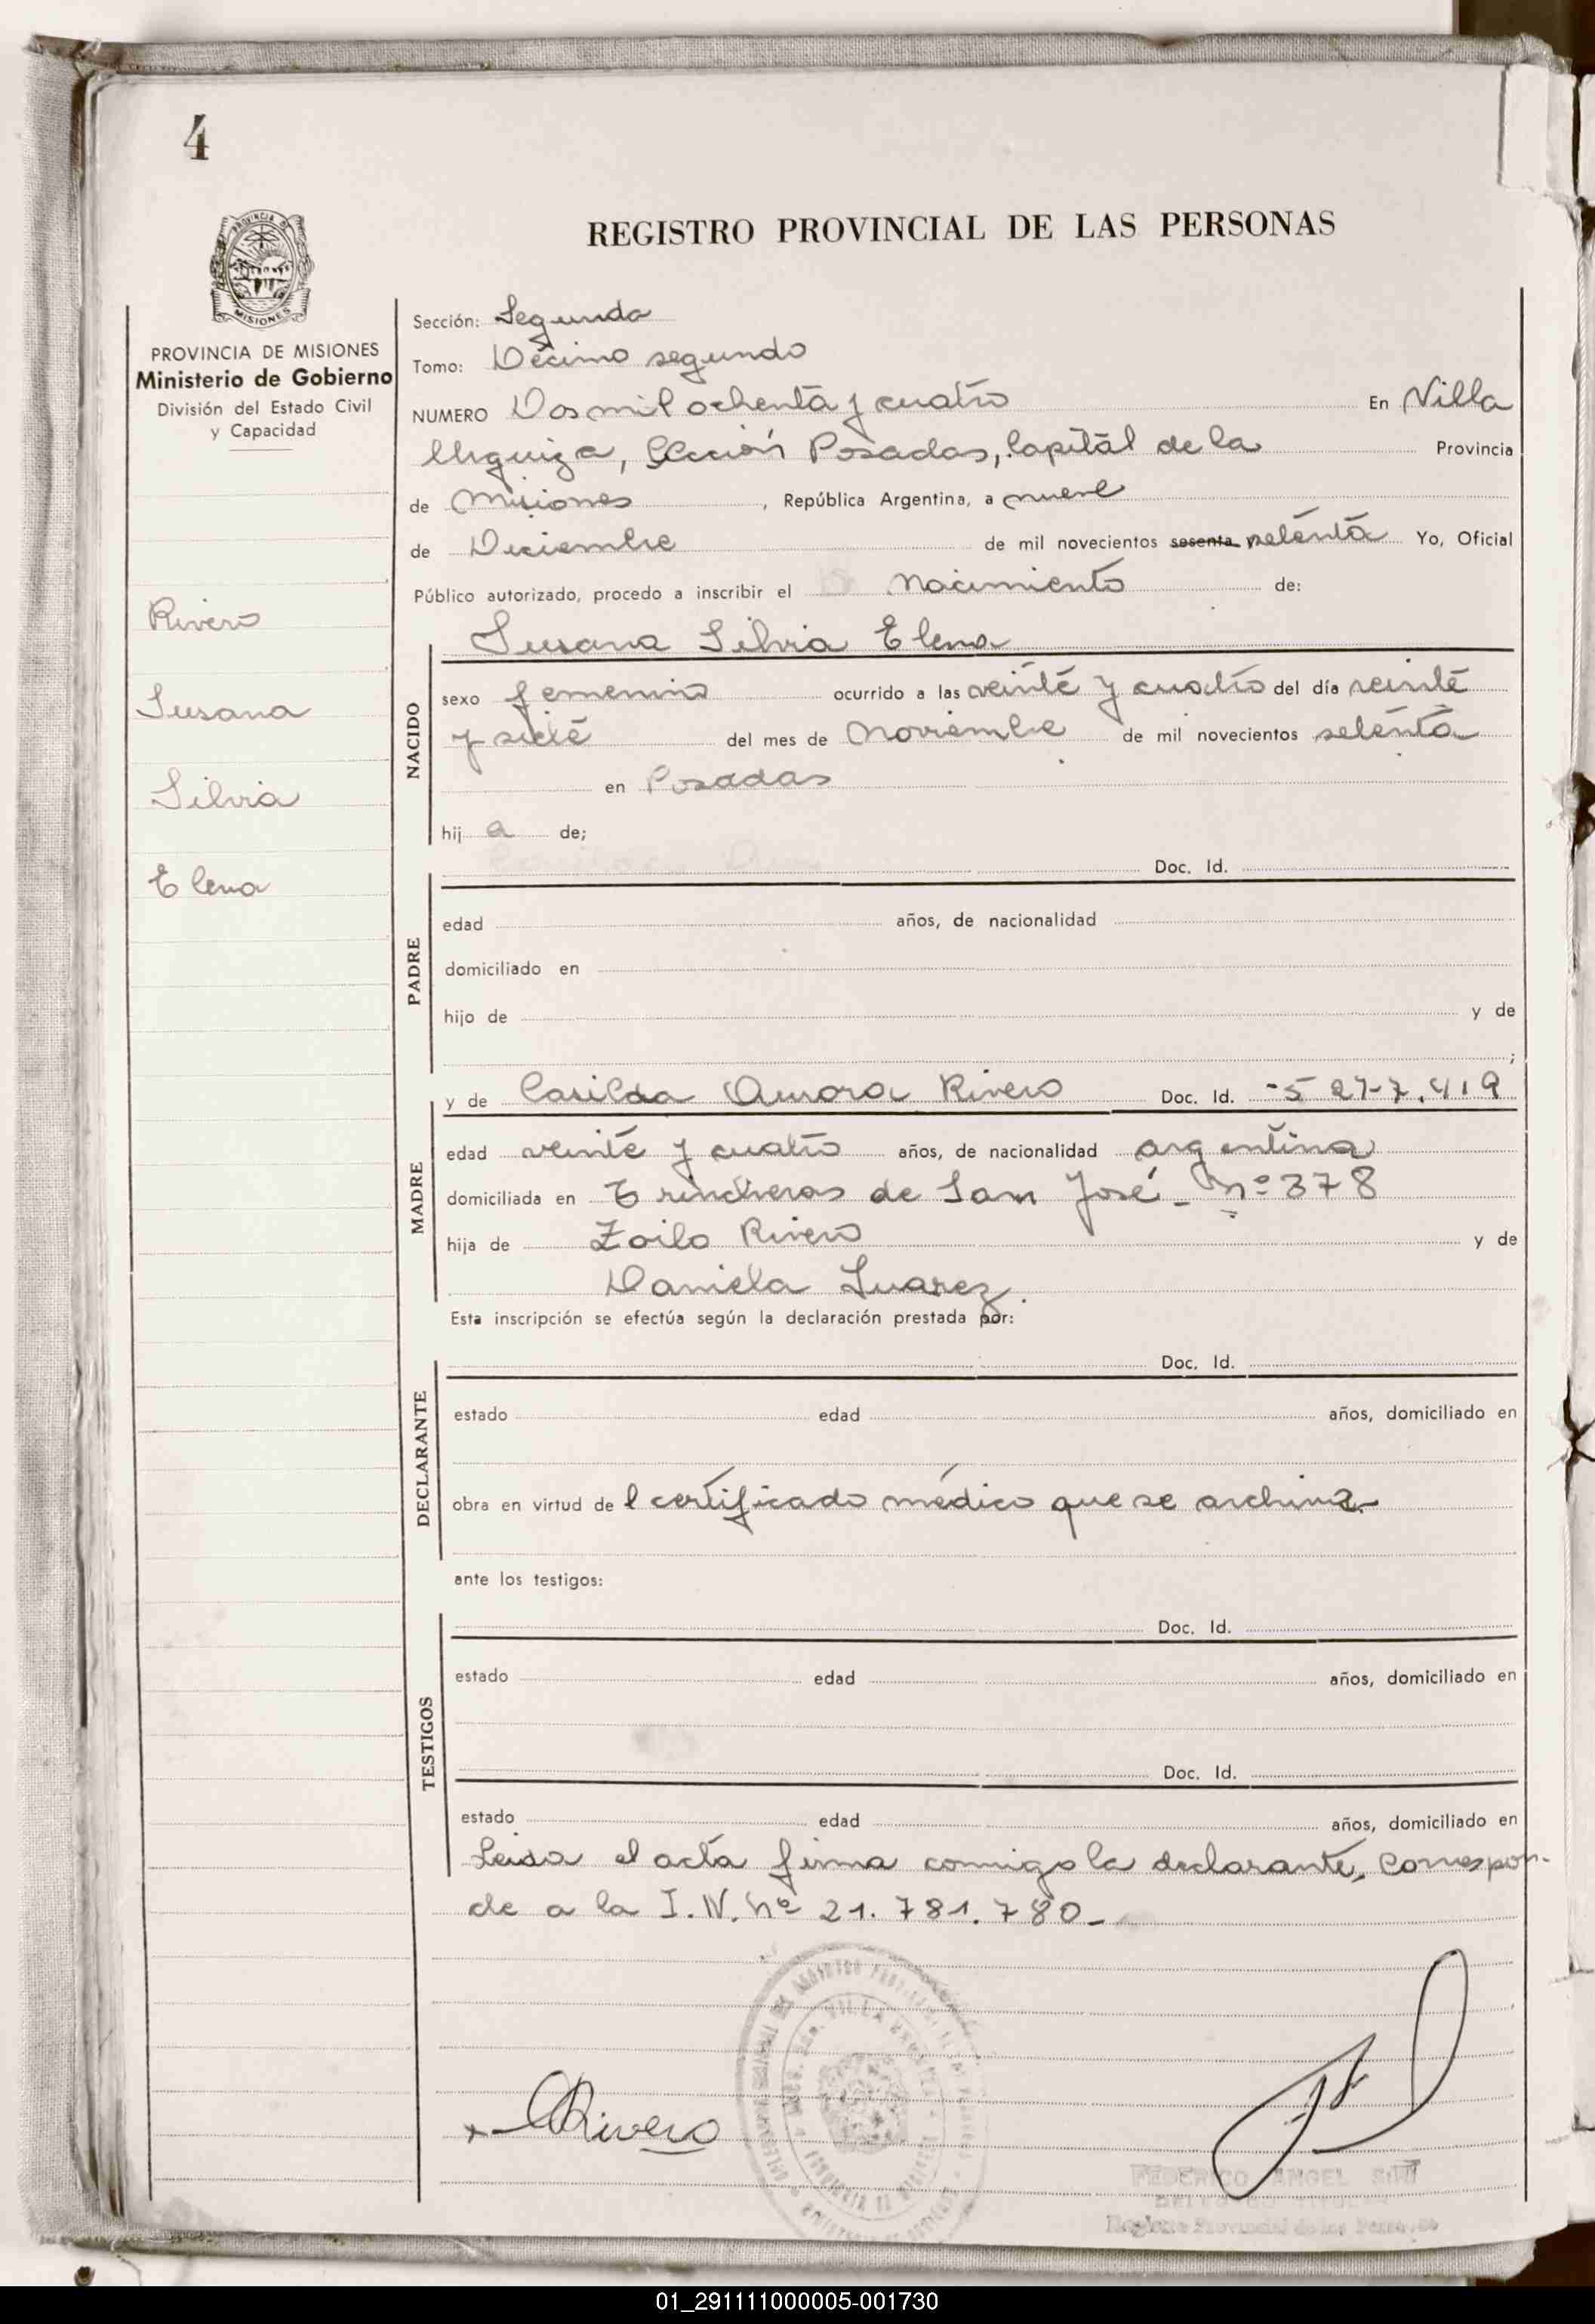 4
REGISTRO PROVINCIAL DE LAS PERSONAS
PROVINCIA DE MISIONES
Ministerio de Gobierno
División del Estado Civil
y Capacidad
Rivero
Susana
Silvia
Elena
Sección: Segunda
Tomo: Décimo segundo
NUMERO Dos mil ochenta y cuatro En Villa
Urquiza, Sección Posadas, Capital de la Provincia
de Misiones, República Argentina, a nueve
de Diciembre de mil novecientos sesenta setenta Yo, Oficial
Público autorizado, procedo a inscribir el Nacimiento de:
NACIDO
Susana Silvia Elena
sexo femenino ocurrido a las veinte y cuatro del día veinte
y siete del mes de Noviembre de mil novecientos setenta
en Posadas
hij a de;
PADRE
Doc. Id.
edad años, de nacionalidad
domiciliado en
hijo de y de
;
MADRE
y de Casilda Aurora Rivero Doc. Id. -5 277.419
edad veinte y cuatro años, de nacionalidad argentina
domiciliada en Trincheras de San José - Nº 378
hija de Zoilo Rivero y de
Daniela Suarez.
Esta inscripción se efectúa según la declaración prestada por:
DECLARANTE
Doc. Id.
estado edad años, domiciliado en
obra en virtud de l certificado médico que se archiva.
ante los testigos:
TESTIGOS
Doc. Id.
estado edad años, domiciliado en
Doc. Id.
estado edad años, domiciliado en
Leida el acta firma conmigo la declarante, Correspon-
de a la I.N. nº 21.781.780-
CARivero
FEDERICO ANGEL
Registro Provincial de las Personas
01_291111000005-001730